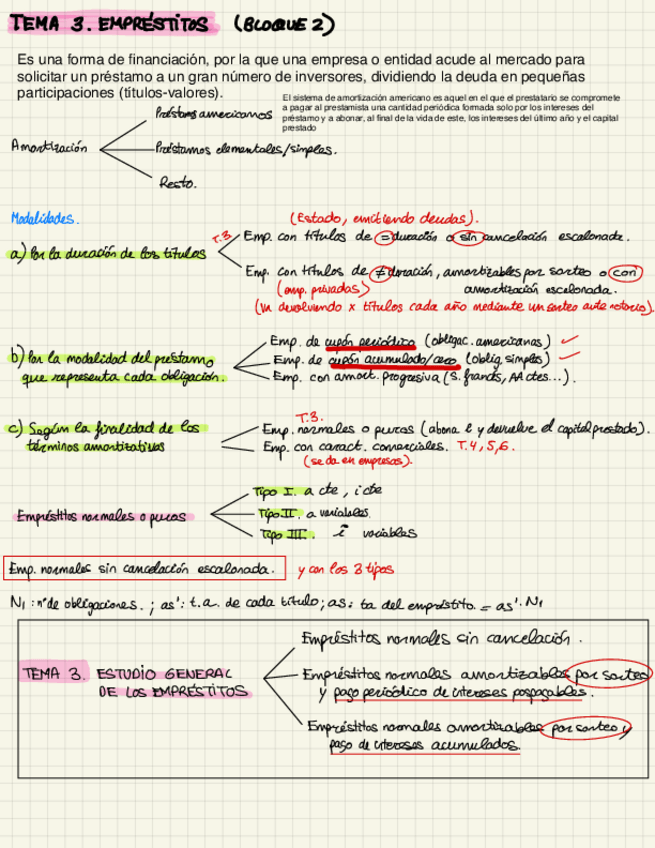 TEMA 3. EMPRÉSTITOS (BLOQUE 2)
Es una forma de financiación, por la que una empresa o entidad acude al mercado para
solicitar un préstamo a un gran número de inversores, dividiendo la deuda en pequeñas
participaciones (títulos-valores).
El sistema de amortización americano es aquel en el que el prestatario se compromete
a pagar al prestamista una cantidad periódica formada solo por los intereses del
préstamo y a abonar, al final de la vida de este, los intereses del último año y el capital
prestado
Préstamos americanos
Amortización
Préstamos elementales/simples.
Resto.
Modalidades.
(Estado, emitiendo deudas).
T.3.
Emp. con títulos de = duración o sin cancelación escalonada.
a) Por la duración de los títulos
Emp. con títulos de ≠ duración, amortizables por sorteo o con
amortización escalonada.
(emp. privadas)
(Van devolviendo x títulos cada año mediante un sorteo ante notario).
Emp. de cupón periódico (obligac. americanas) ✓
b) Por la modalidad del préstamo
Emp. de cupón acumulado/cero (oblig. simples) ✓
que representa cada obligación.
Emp. con amort. progresiva (S. francés, AA ctes...).
T.3.
c) Según la finalidad de los
Emp. normales o puros (abona i y devuelve el capital prestado).
términos amortizativos
Emp. con caract. comerciales. T.4, 5, 6.
(se da en empresas).
Tipo I. a cte, i cte
Empréstitos normales o puros
Tipo II. a variables.
Tipo III. i variables
Emp. normales sin cancelación escalonada. y con los 3 tipos
N1: nº de obligaciones. ; as': t.a. de cada título; as: ta del empréstito. = as'. N1
Empréstitos normales sin cancelación.
TEMA 3. ESTUDIO GENERAL
DE LOS EMPRÉSTITOS
Empréstitos normales amortizables por sorteo
y pago periódico de intereses pospagables.
Empréstitos normales amortizables por sorteo y
pago de intereses acumulados.